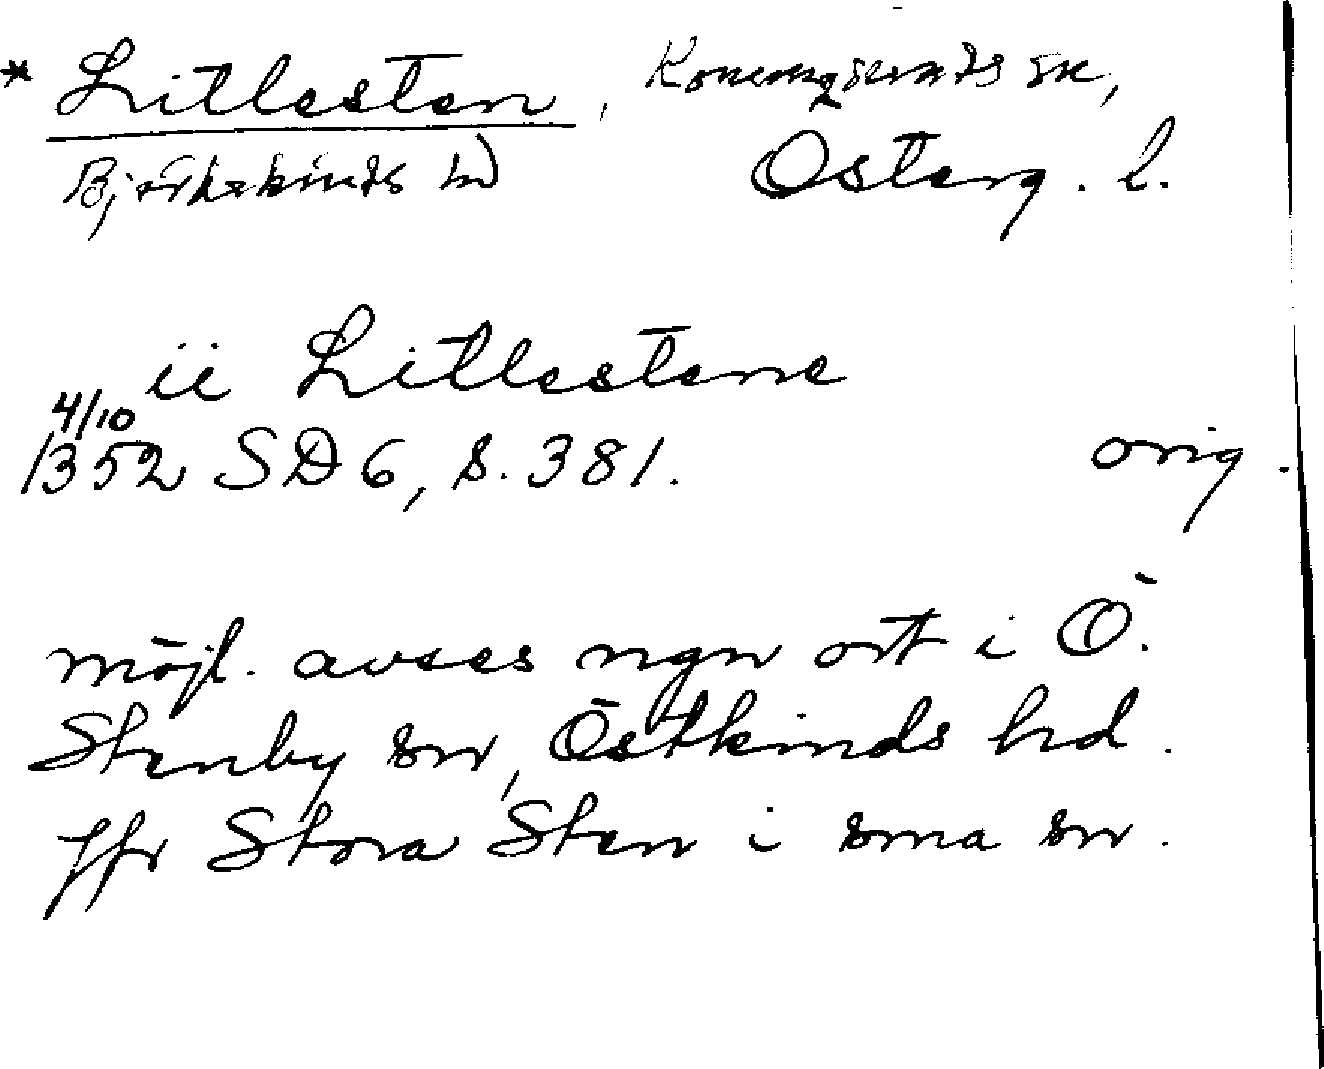 * Litlesten, Konungsunds sn,
Björkekinds hd Österg. l.
ii Litlestene
4/10
1352 SD 6, s. 381. orig.
möjl. avses ngn ort i Ö.
Stenby sn, Östkinds hd.
Jfr Stora Sten i sma sn.